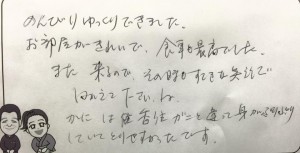 のんびりゆっくりできました。
お部屋がきれいで、食事も最高でした。
また来るので、その時もすてきな笑顔で
むかえて下さいね。
かには 甲 がこと 違って身が
していてとりやすかったです。